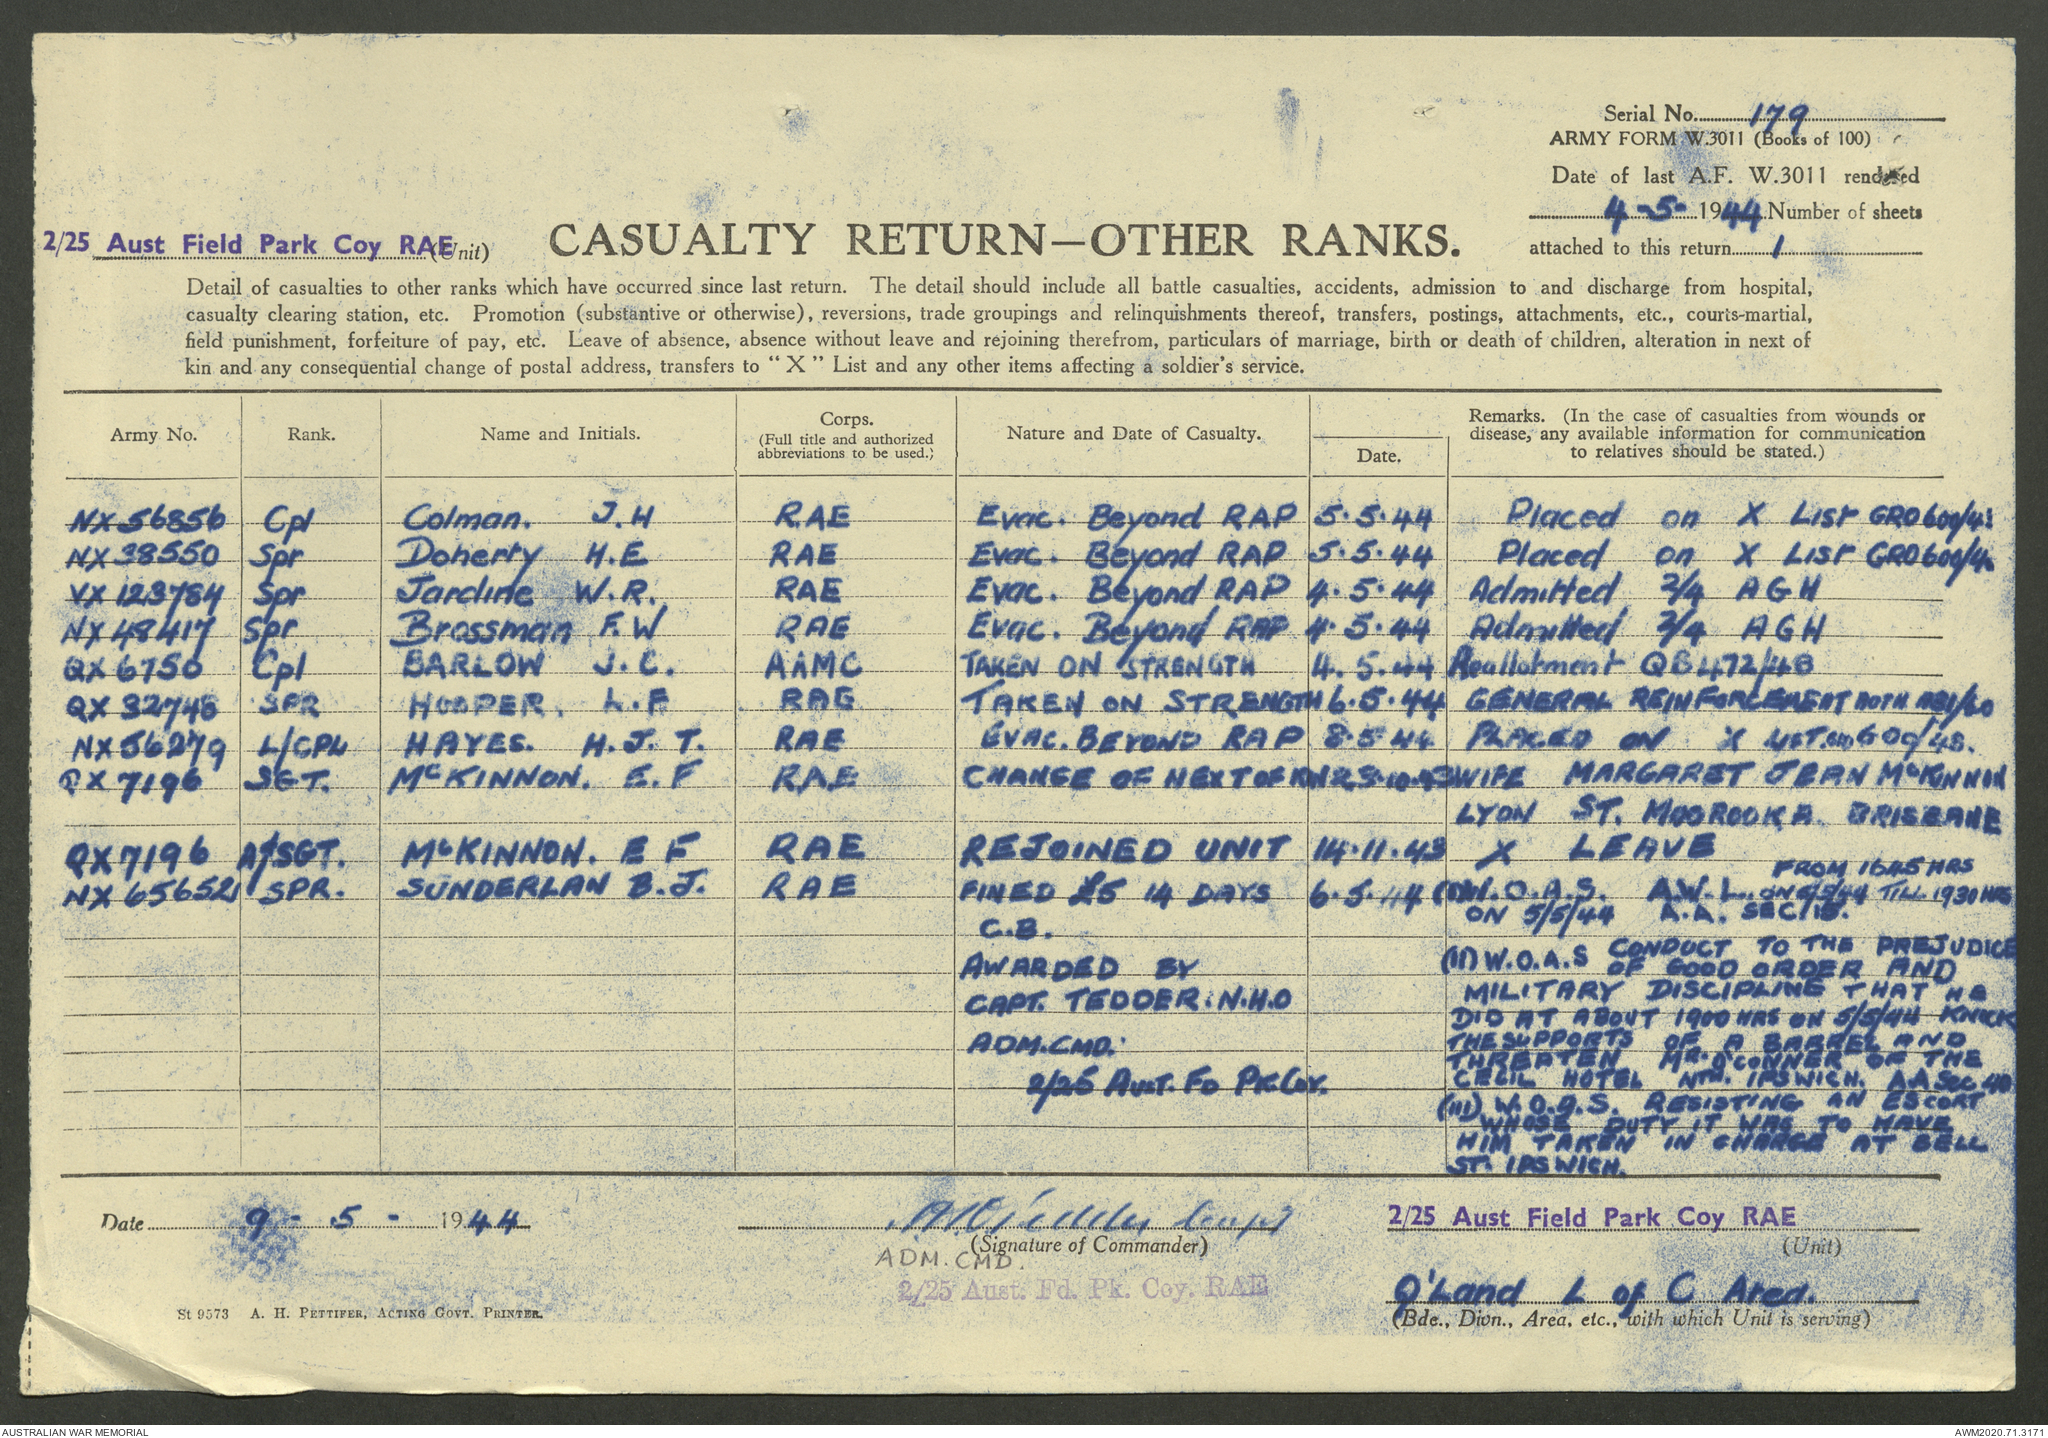 Serial No. 179
ARMY FORM W.3011 (Books of 100)
Date of last A.F. W.3011 rendered
4-5-1944. Number of sheets
attached to this return 1
2/25 Aust Field Park Coy RAE (Unit)
CASUALTY RETURN—OTHER RANKS.
Detail of casualties to other ranks which have occurred since last return. The detail should include all battle casualties, accidents, admission to and discharge from hospital,
casualty clearing station, etc. Promotion (substantive or otherwise), reversions, trade groupings and relinquishments thereof, transfers, postings, attachments, etc., courts-martial,
field punishment, forfeiture of pay, etc. Leave of absence, absence without leave and rejoining therefrom, particulars of marriage, birth or death of children, alteration in next of
kin and any consequential change of postal address, transfers to "X" List and any other items affecting a soldier's service.
Army No. Rank. Name and Initials. Corps. (Full title and authorized abbreviations to be used.) Nature and Date of Casualty. Date. Remarks. (In the case of casualties from wounds or disease, any available information for communication to relatives should be stated.)
NX56856 Cpl Colman. J.H RAE Evac. Beyond RAP 5.5.44 Placed on X List GRO600/43
NX38550 Spr Doherty H.E RAE Evac. Beyond RAP 5.5.44 Placed on X List GRO600/4
VX123784 Spr Jardine W.R. RAE Evac. Beyond RAP 4.5.44 Admitted 2/4 AGH
NX48417 Spr Brossman F.W RAE Evac. Beyond RAP 4.5.44 Admitted 2/4 AGH
QX6750 Cpl BARLOW J.C. AAMC TAKEN ON STRENGTH 4.5.44 Reallotment QB472/48
QX32748 SPR HOOPER. L.F RAE TAKEN ON STRENGTH 6.5.44 GENERAL REINFORCEMENT
NX56279 L/CPL HAYES. H.J.T. RAE EVAC. BEYOND RAP 8.5.44 PLACED ON X LIST. GRO 600/43.
QX7196 SGT. McKINNON. E.F RAE CHANGE OF NEXT OF KIN 23.10.43 WIFE MARGARET JEAN McKINNON
LYON ST. MOOROOKA. BRISBANE
QX7196 A/SGT. McKINNON. E F RAE REJOINED UNIT 14.11.43 X LEAVE
NX65652 SPR. SUNDERLAN B.J. RAE FINED £5 14 DAYS 6.5.44 (I) W.O.A.S. A.W.L. FROM 1645 HRS
ON 5/5/44 TILL 1930 HRS
C.B. ON 5/5/44 A.A. SEC 15.
AWARDED BY (II) W.O.A.S CONDUCT TO THE PREJUDICE
OF GOOD ORDER AND
CAPT. TEDDER. N.H.O MILITARY DISCIPLINE THAT HE
DID AT ABOUT 1900 HRS ON 5/5/44 KNOCK
ADM.CMD. THE SUPPORTS OF A BARREL AND
THREATEN MR. O'CONNER OF THE
2/25 Aust. Fd Pk. Coy. CECIL HOTEL NTH. IPSWICH. A.A SEC 40
(III) W.O.A.S. RESISTING AN ESCORT
WHOSE DUTY IT WAS TO HAVE
HIM TAKEN IN CHARGE AT BELL
ST. IPSWICH.
Date 9 - 5 - 1944
(Signature of Commander)
ADM. CMD.
2/25 Aust. Fd. Pk. Coy. RAE
2/25 Aust Field Park Coy RAE
(Unit)
Q'Land L of C Area.
(Bde., Divn., Area, etc., with which Unit is serving)
St 9573 A. H. PETTIFER, ACTING GOVT. PRINTER.
AUSTRALIAN WAR MEMORIAL
AWM2020.71.3171